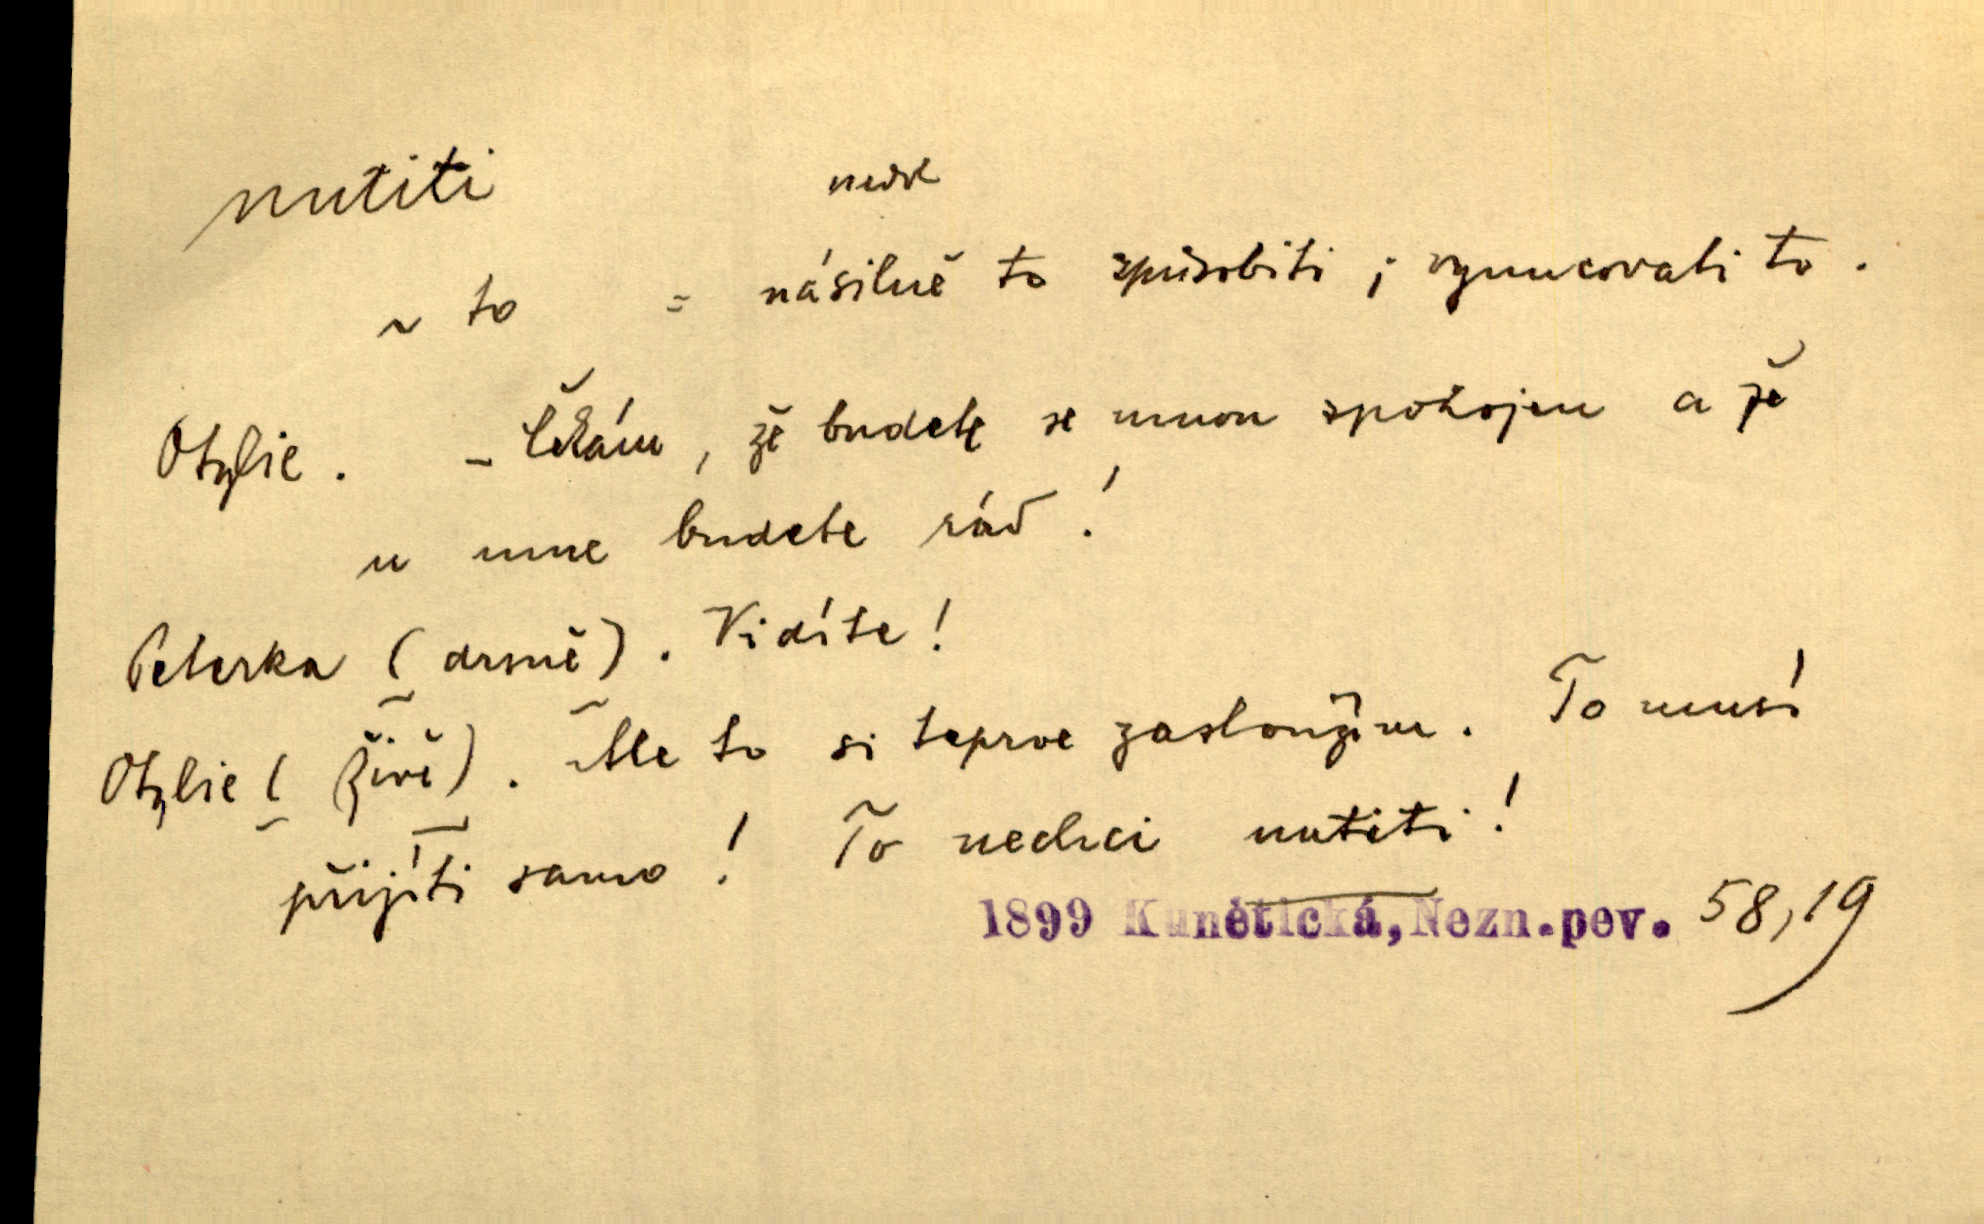 nutiti nedok
~ to = násilně to způsobiti ; vynucovati to .
Otylie . – Čekám , že budete se mnou spokojen a že
u mne budete rád !
Peterka ( drsně ) . Vidíte !
Otylie ( živě ) . Ale to si teprve zasloužím . To musí
přijíti samo ! To nechci nutiti !
1899 Kunětická, Nezn. pev. 58, 19